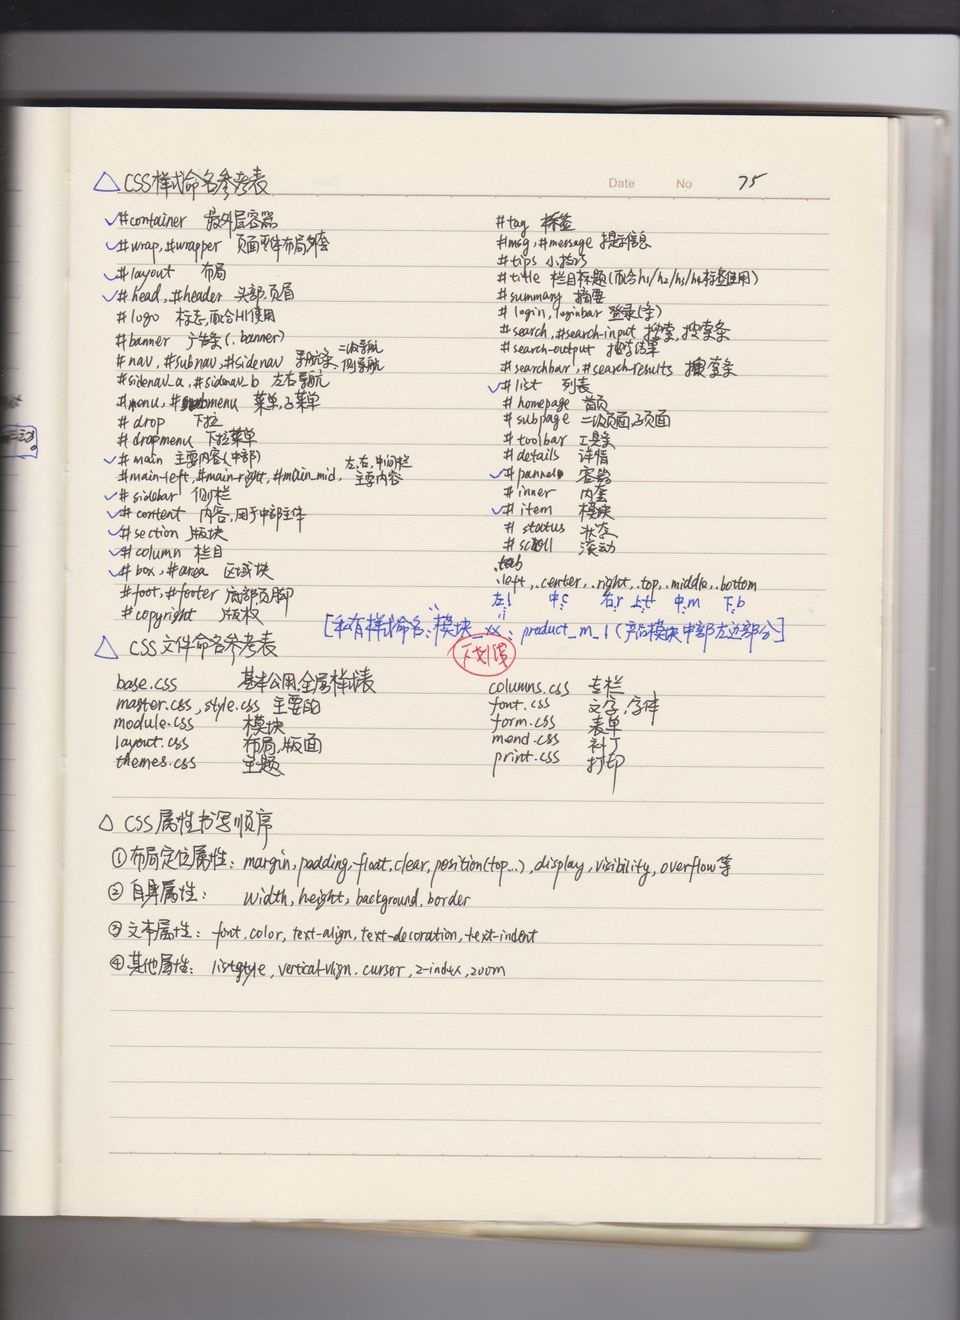 Date No 75
△ CSS样式命名参考表
✓#container 最外层容器
✓#wrap,#wrapper 页面整体布局外套
✓#layout 布局
✓#head,#header 头部,页眉
#logo 标志,配合H1使用
#banner 广告条(.banner)
#nav,#subnav,#sidenav 导航条,二级导航,侧导航
#sidenav_a,#sidenav_b 左右导航
#menu,#submenu 菜单,子菜单
#drop 下拉
#dropmenu 下拉菜单
✓#main 主要内容(中部)
#main-left,#main-right,#main_mid, 左,右,中间栏主要内容
✓#sidebar 侧栏
✓#content 内容,用于中部主体
✓#section 版块
✓#column 栏目
✓#box,#area 区域块
#foot,#footer 底部,页脚
#copyright 版权
#tag 标签
#msg,#message 提示信息
#tips 小技巧
#title 栏目标题(配合h1/h2/h3/h4标签使用)
#summary 摘要
#login,loginbar 登录(条)
#search,#search-input 搜索,搜索条
#search-output 搜索结果
#searchbar,#search-results 搜索条
✓#list 列表
#homepage 首页
#subpage 二级页面,子页面
#toolbar 工具条
#details 详情
✓#pannel 容器
#inner 内套
✓#item 模块
#status 状态
#scroll 滚动
.tab
.left,.center,.right,.top,.middle,.bottom
左:l 中:c 右:r 上:t 中:m 下:b
[私有样式命名:模块_xx: product_m_l(产品模块中部左边部分]
下划线
△ CSS文件命名参考表
base.css 基本公用,全局样式表
master.css,style.css 主要的
module.css 模块
layout.css 布局,版面
themes.css 主题
columns.css 专栏
font.css 文字,字体
form.css 表单
mend.css 补丁
print.css 打印
△ CSS属性书写顺序
①布局定位属性: margin,padding,float,clear,position(top...),display,visibility,overflow等
②自身属性: width,height,background,border
③文本属性: font,color,text-align,text-decoration,text-indent
④其他属性: liststyle,vertical-align,cursor,z-index,zoom